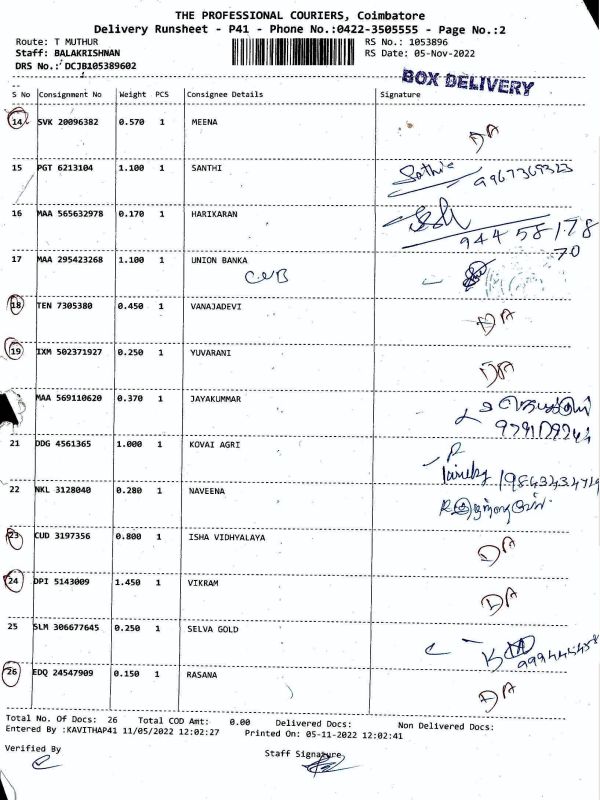 THE PROFESSIONAL COURIERS, Coimbatore
Delivery Runsheet - P41 - Phone No.:0422-3505555 - Page No.:2
Route: T MUTHUR RS No.: 1053896
Staff: BALAKRISHNAN RS Date: 05-Nov-2022
DRS No.: DCJB105389602
BOX DELIVERY
S No Consignment No Weight PCS Consignee Details Signature
14 SVK 20096382 0.570 1 MEENA DA
15 PGT 6213104 1.100 1 SANTHI 9967369323
16 MAA 565632978 0.170 1 HARIKARAN
944 58178
70
17 MAA 295423268 1.100 1 UNION BANKA
CUB
18 TEN 7305380 0.450 1 VANAJADEVI DA
19 IXM 502371927 0.250 1 YUVARANI DA
MAA 569110620 0.370 1 JAYAKUMMAR
21 DDG 4561365 1.000 1 KOVAI AGRI
22 NKL 3128040 0.280 1 NAVEENA
23 CUD 3197356 0.800 1 ISHA VIDHYALAYA DA
24 DPI 5143009 1.450 1 VIKRAM DA
25 SLM 306677645 0.250 1 SELVA GOLD
26 EDQ 24547909 0.150 1 RASANA DA
Total No. Of Docs: 26 Total COD Amt: 0.00 Delivered Docs: Non Delivered Docs:
Entered By :KAVITHAP41 11/05/2022 12:02:27 Printed On: 05-11-2022 12:02:41
Verified By Staff Signature